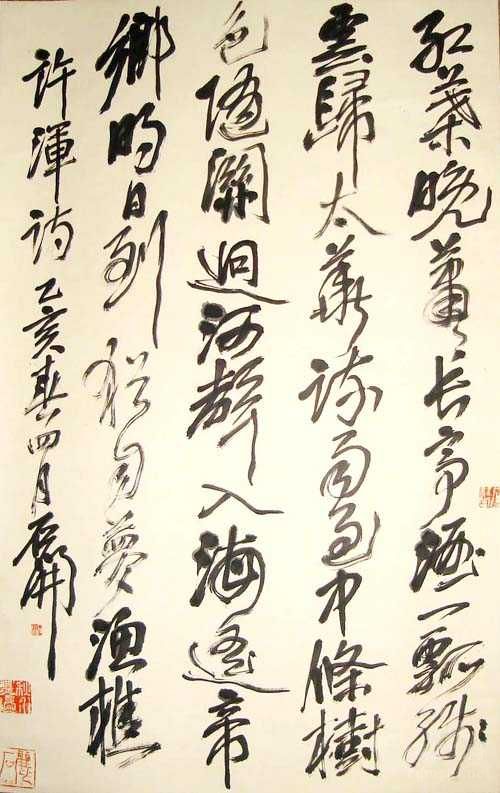 红葉晚蕭〻长亭酒一瓢残
雲歸太華疏雨過中條樹
色随關迥河聲入海遥帝
鄉明日到猶自夢漁樵
許渾詩乙亥春四月